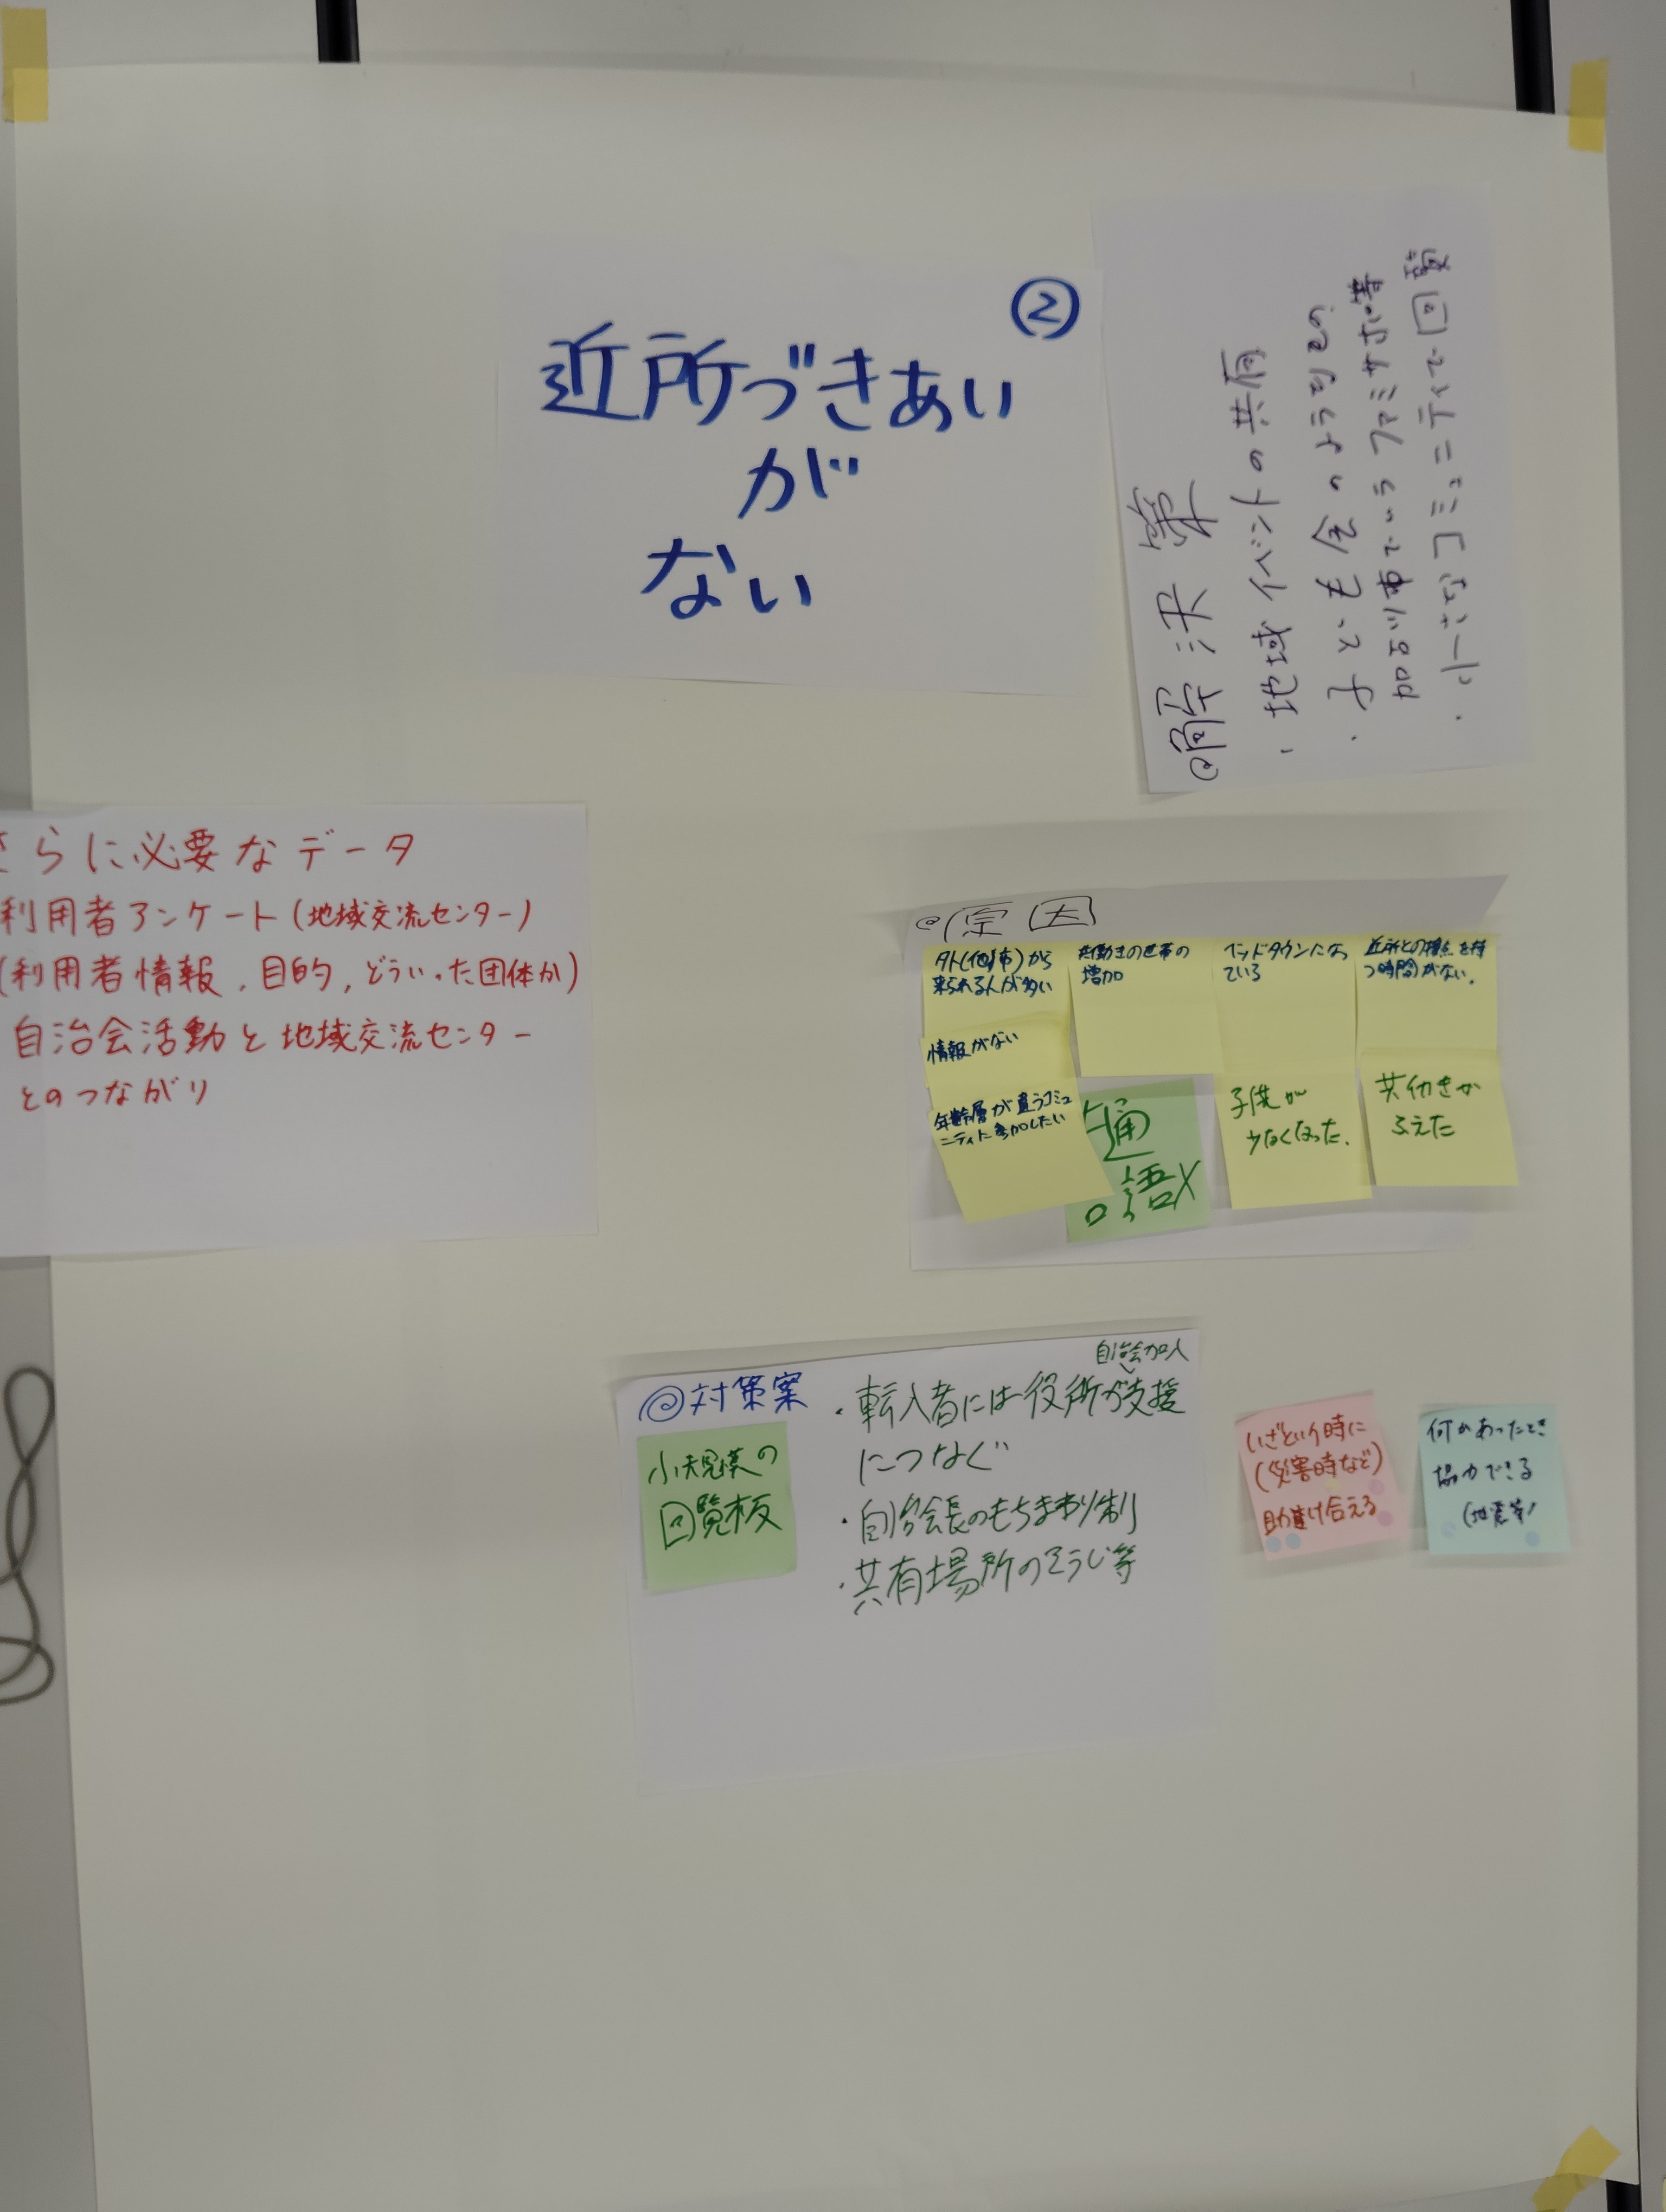 ②
近所づきあい
が
ない
◎解決案
・地域イベントの共有
・子ども食堂
・小さなコミュニティで回覧
さらに必要なデータ
利用者アンケート(地域交流センター)
(利用者情報,目的,どういった団体か)
自治会活動と地域交流センター
とのつながり
◎原因
外(他市)から
来られる人が多い
共働きの世帯の
増加
ベッドタウンになっ
ている
近所との接点を持
つ時間がない。
情報がない
年齢層が違うコミュ
ニティに参加したい
子供が
少なくなった.
共働きが
ふえた
◎対策案
小規模の
回覧板
自治会加入
・転入者には役所が支援
につなぐ
・自治会長のもちまわり制
・共有場所のそうじ等
いざという時に
(災害時など)
助け合える
何かあったとき
協力できる
(地震等)